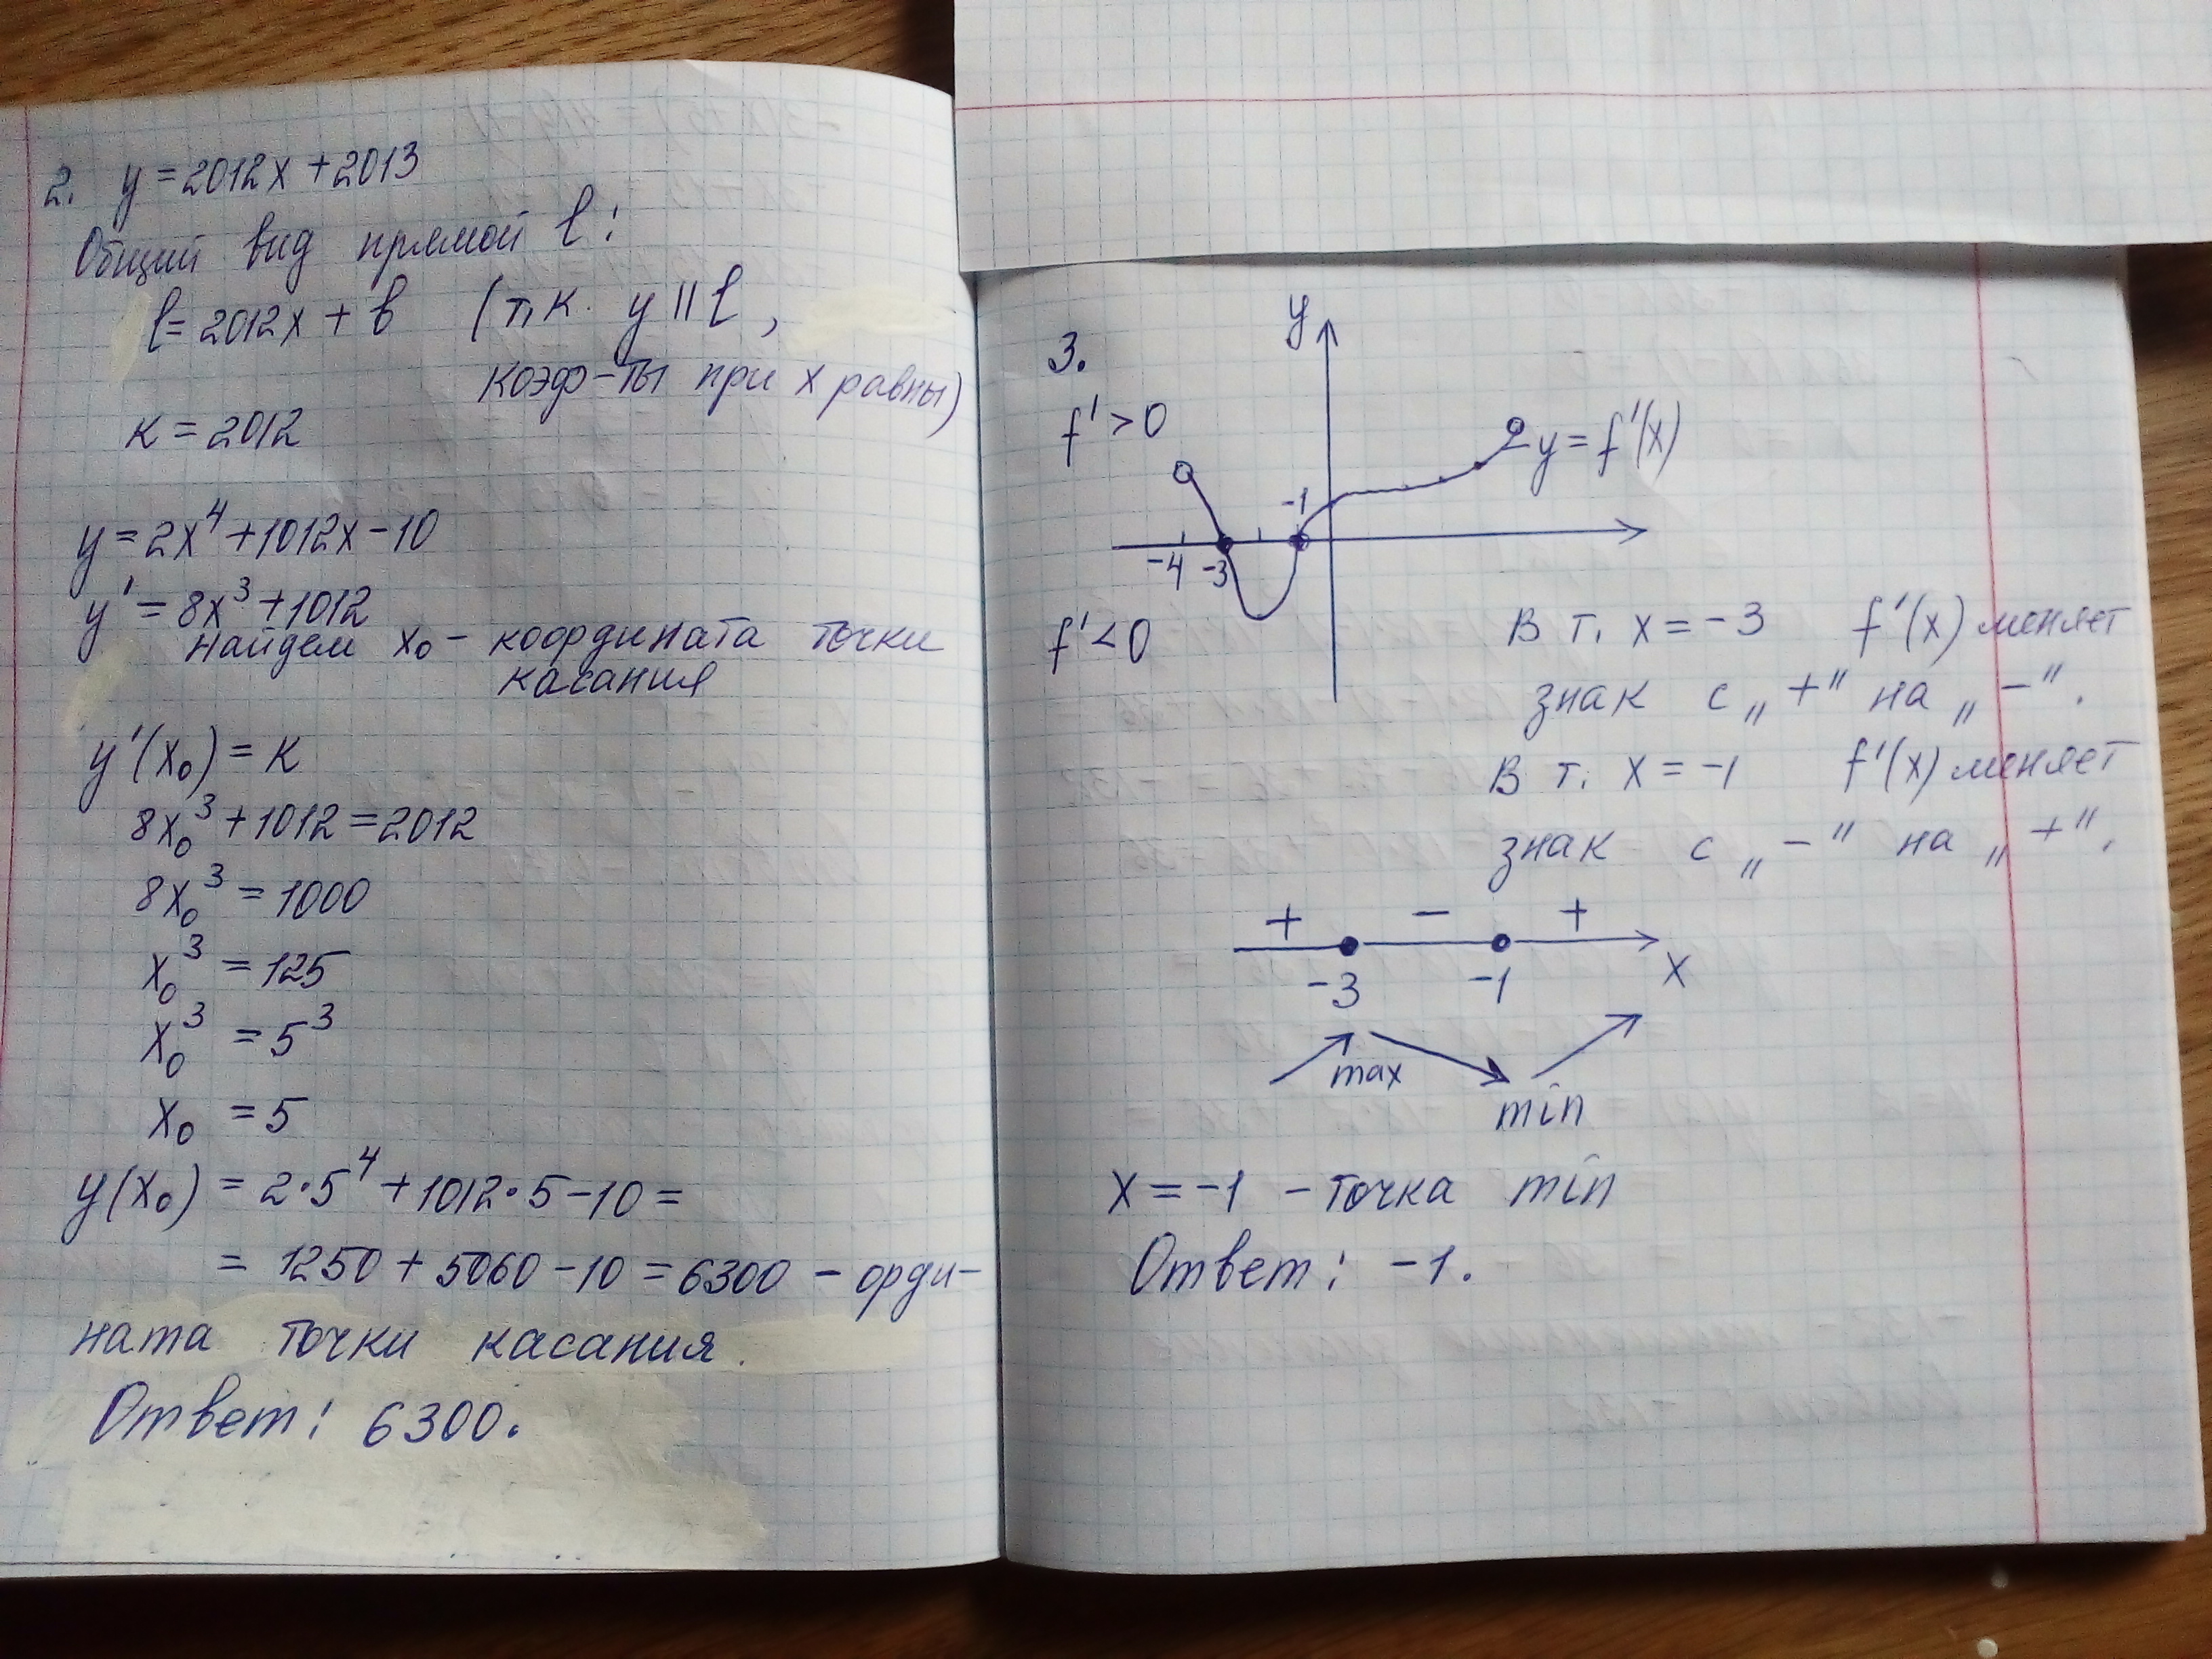 2. y = 2012x + 2013
Общий вид прямой l:
l = 2012x + b (т.к. y || l,
коэф-ты при x равны)
к = 2012
y = 2x⁴ + 1012x - 10
y' = 8x³ + 1012
найдем x₀ - координата точки
касания
y'(x₀) = к
8x₀³ + 1012 = 2012
8x₀³ = 1000
x₀³ = 125
x₀³ = 5³
x₀ = 5
y(x₀) = 2·5⁴ + 1012·5 - 10 =
= 1250 + 5060 - 10 = 6300 - орди-
ната точки касания.
Ответ: 6300.
3.
y
f' > 0
y = f'(x)
-1
-4 -3
f' < 0
В т. x = -3 f'(x) меняет
знак с „+" на „-".
В т. x = -1 f'(x) меняет
знак с „-" на „+".
+ - +
-3 -1 x
max
min
x = -1 - точка min
Ответ: -1.